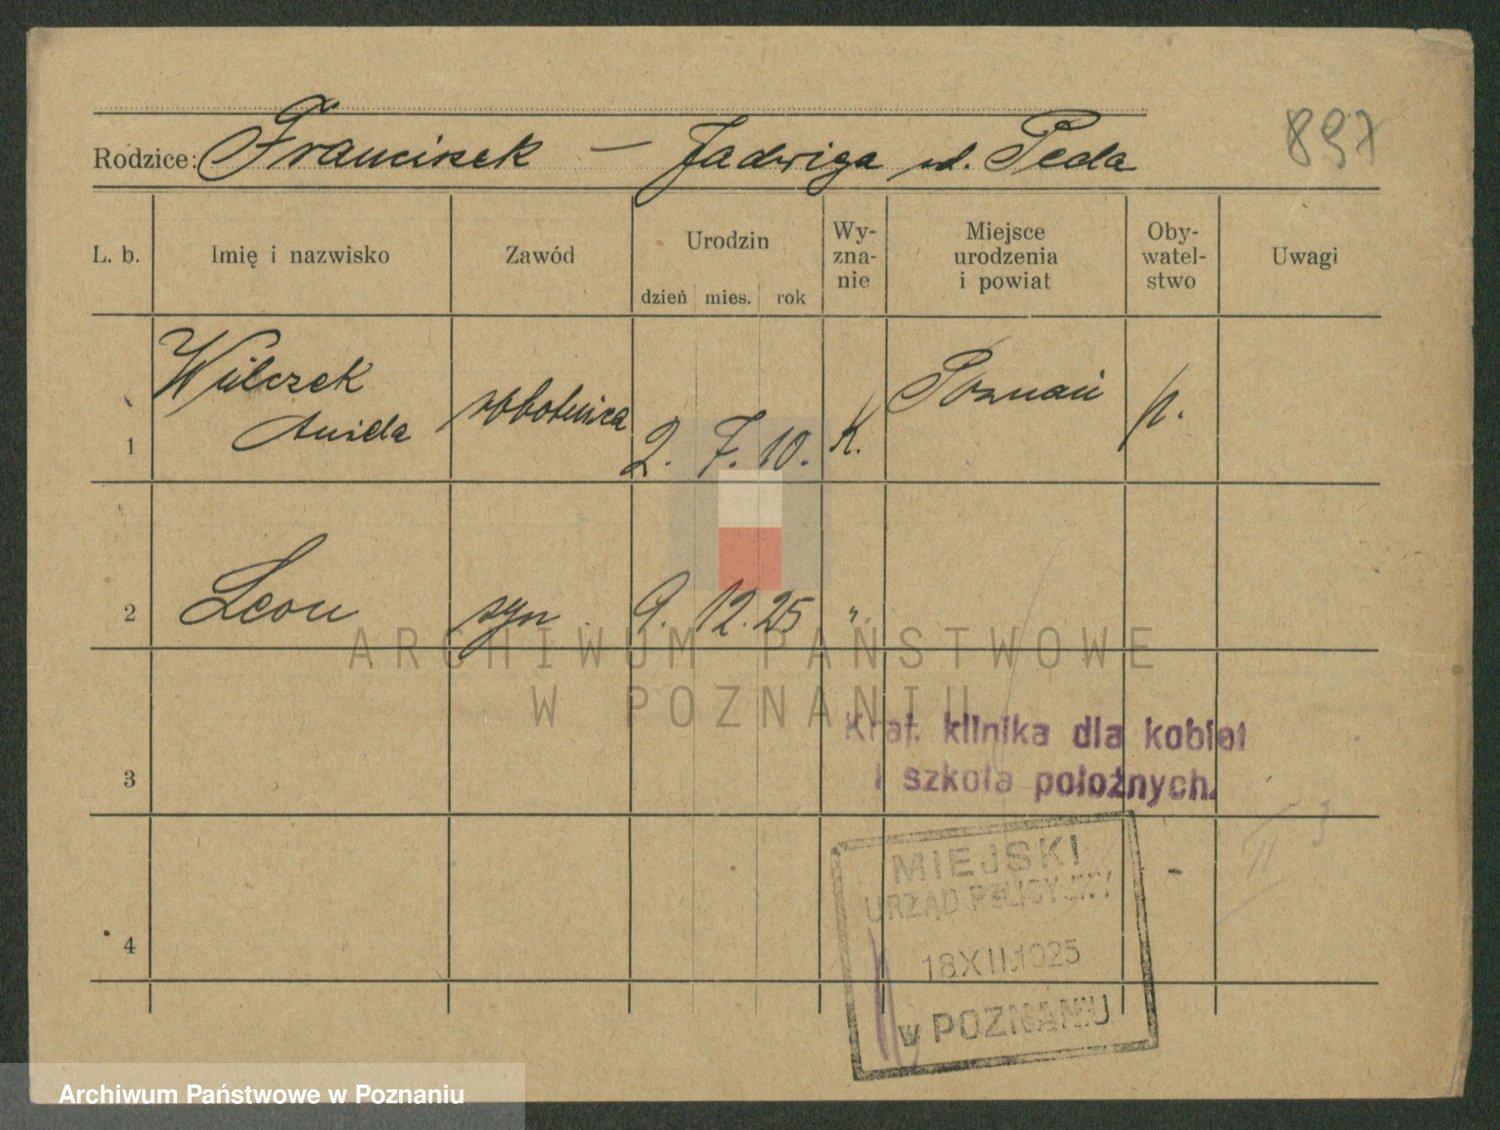 897
Rodzice: Franciszek — Jadwiga ud. Peda
L. b. Imię i nazwisko Zawód Urodzin Wy-zna-nie Miejsce urodzenia i powiat Oby-watel-stwo Uwagi
dzień mies. rok
1 Wilczek robotnica 2. 7. 10. K. Poznań p.
2 Leon syn 9. 12. 25 ".
ARCHIWUM PAŃSTWOWE
W POZNANIU
Kraj. klinika dla kobiet
3 i szkoła położnych.
MIEJSKI
URZĄD POLICYJNY
4 18 XII. 1925
w POZNANIU
Archiwum Państwowe w Poznaniu